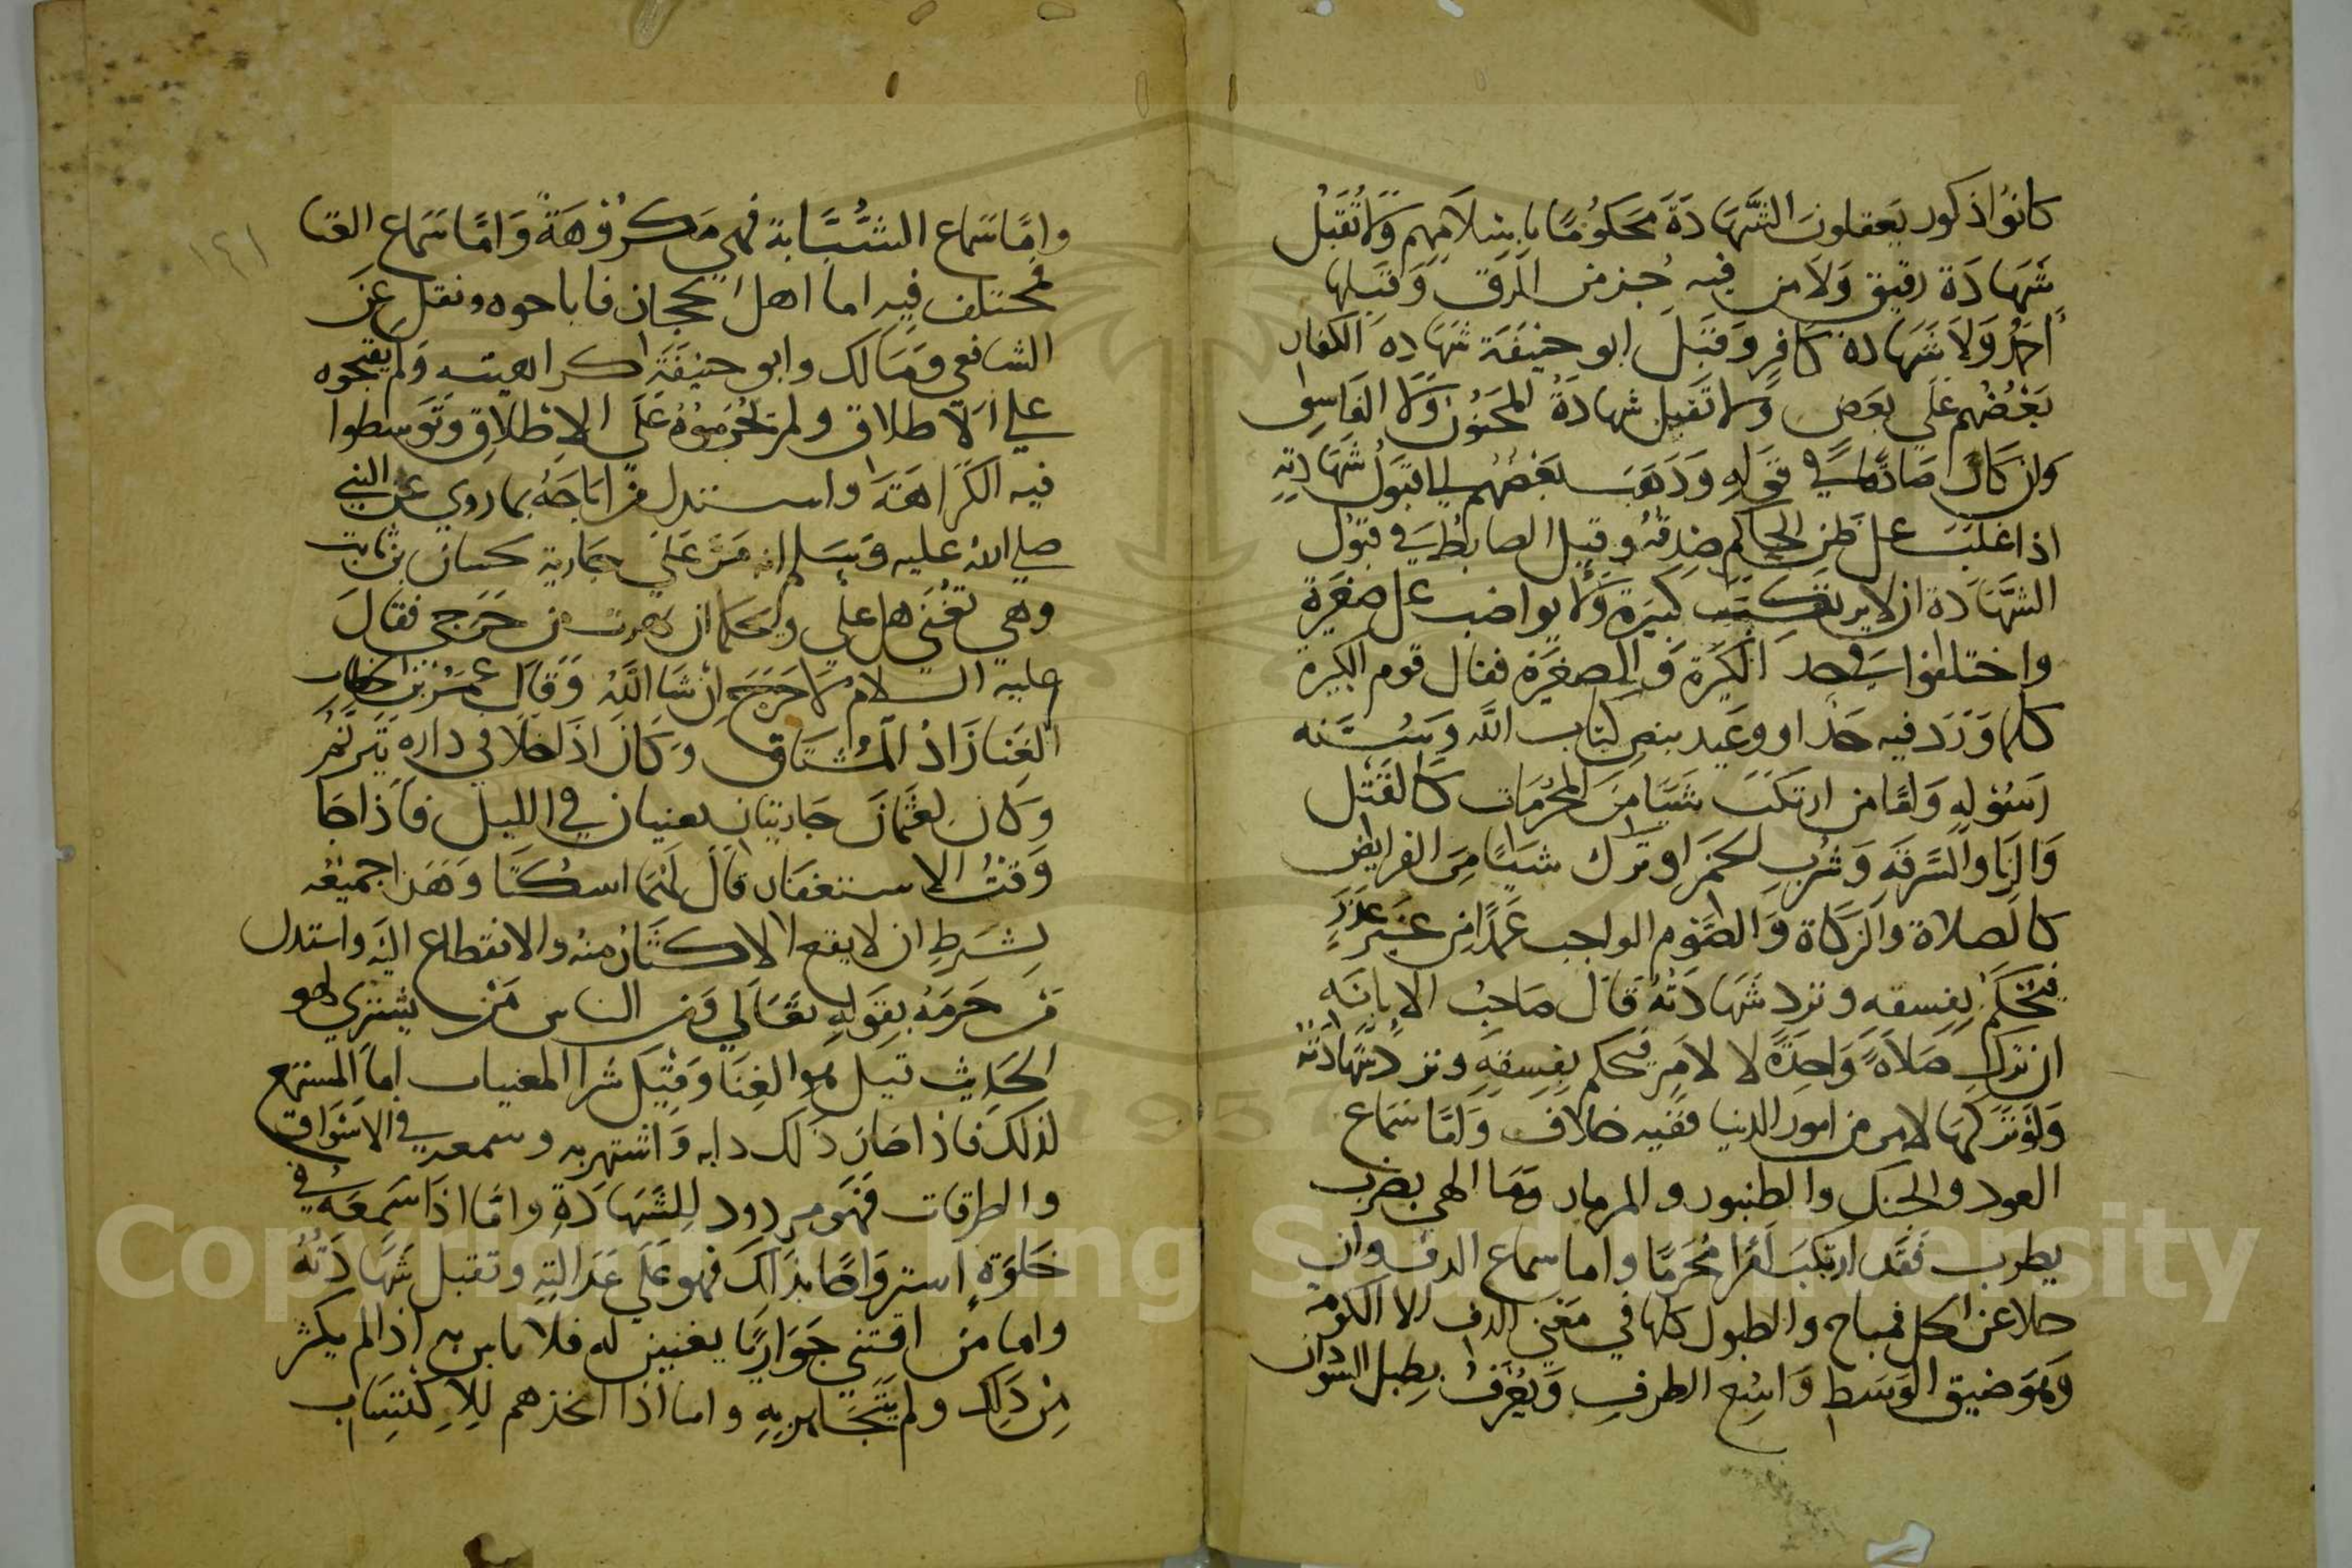 كانوا ذكور يعقلون الشهادة محكوما باسلامهم ولا تقبل
شهادة رقيق ولا من فيه جز من الرق وقبلها
احمد ولا شهادة كافر وقبل ابو حنيفة شهاده الكفار
بعضهم على بعض ولا تقبل شهادة المجنون ولا الفاسق
وان كان صادقا في قوله وذهب بعضهم الي قبول شهادته
اذا غلب على ظن الحاكم صدقه وقيل الضابط في قبول
الشهادة ان لا يرتكب كبيرة ولا يواضب على صغيرة
واختلفوا في حد الكبيرة والصغيرة فقال قوم الكبيرة
كلما ورد فيه حد او وعيد بنص كتاب الله وسنه
رسوله واما من ارتكب شيا من المحرمات كالقتل
والزنا والسرقه وشرب الخمر او ترك شيا من الفرايض
كالصلاة والزكاة والصوم الواجب عمدا من غير عذر
فيحكم بفسقه وترد شهادته قال صاحب الابانه
ان ترك صلاة واحدة لا لامر يحكم بفسقه وترد شهادته
ولو تركها لامر من امور الدنيا ففيه خلاف واما سماع
العود والجنك والطنبور والمزمار وما الهي بضرب
يطرب فقد ارتكب امرا محرما واما سماع الدف وان
خلا عن الجلاجل فمباح والطبول كلها في معني الدف الا الكوبة
وهو ضيق الوسط واسع الطرف ويعرف بطبل السودان
واما سماع الشبابة فهي مكروهة واما سماع الغنا
فمختلف فيه اما اهل الحجاز فاباحوه ونقل عن
الشافعي ومالك وابو حنيفة اكراهيته ولم يقبحوه
على الاطلاق ولم يحرموه على الاطلاق وتوسطوا
فيه الكراهة واستدل من اباحه بما روي عن النبي
صلى الله عليه وسلم انه مر على جارية حسان بن ثابت
وهي تغني هل علي ويحكما ان لهوت من حرج فقال
عليه السلام لا حرج ان شا الله وقال عمر بن الخطاب
الغنا زاد المشتاق وكان اذا خلا في داره يترنم
وكان لعثمان جاريتان يغنيان في الليل فاذا جا
وقت الاستغفار قال لهما اسكتا وهذا جميعه
بشرط ان لا يقع الاكثار منه والانقطاع اليه واستدل
من حرمه بقوله تعالي ومن الناس من يشتري لهو
الحديث قيل هو الغنا وقيل شرا المغنيات اما المستمع
لذلك فاذا صار ذلك دابه واشتهر به وسمعه في الاسواق
والطرقات فهو مردود للشهادة واما اذا سمعه في
خلوة استرواحا بذلك فهو على عدالته وتقبل شهادته
واما من اقتني جوارياً يغنين له فلا باس به اذا لم يكثر
من ذلك ولم يتجاهر به واما اذا اتخذهم للاكتساب